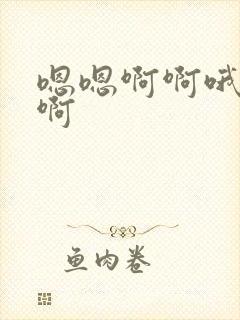 嗯嗯啊啊哦
啊
鱼肉卷